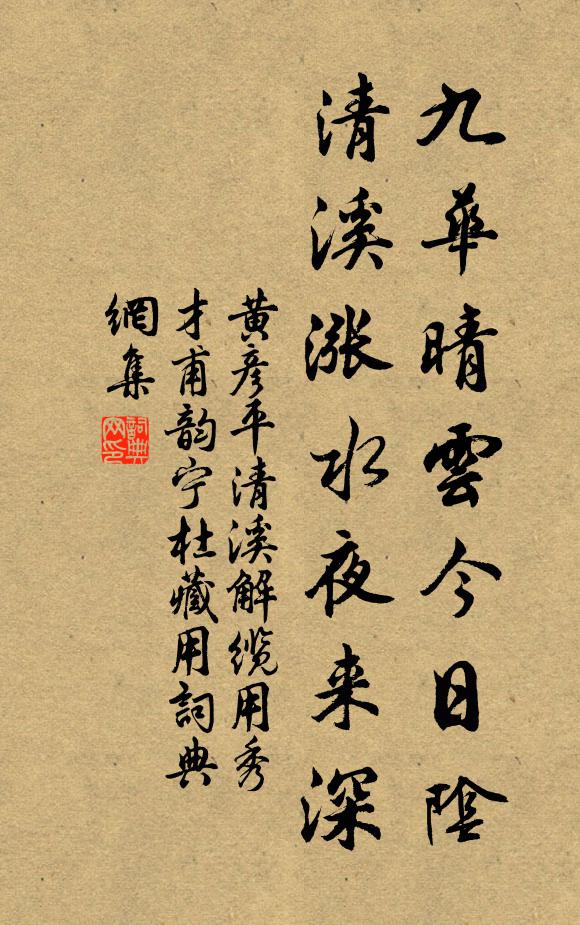 九華晴雲今日陰
清溪漲水夜來深
黃彦平清溪解缆用秀
才甫韵宁杜藏用詞典
網集
詞典网印